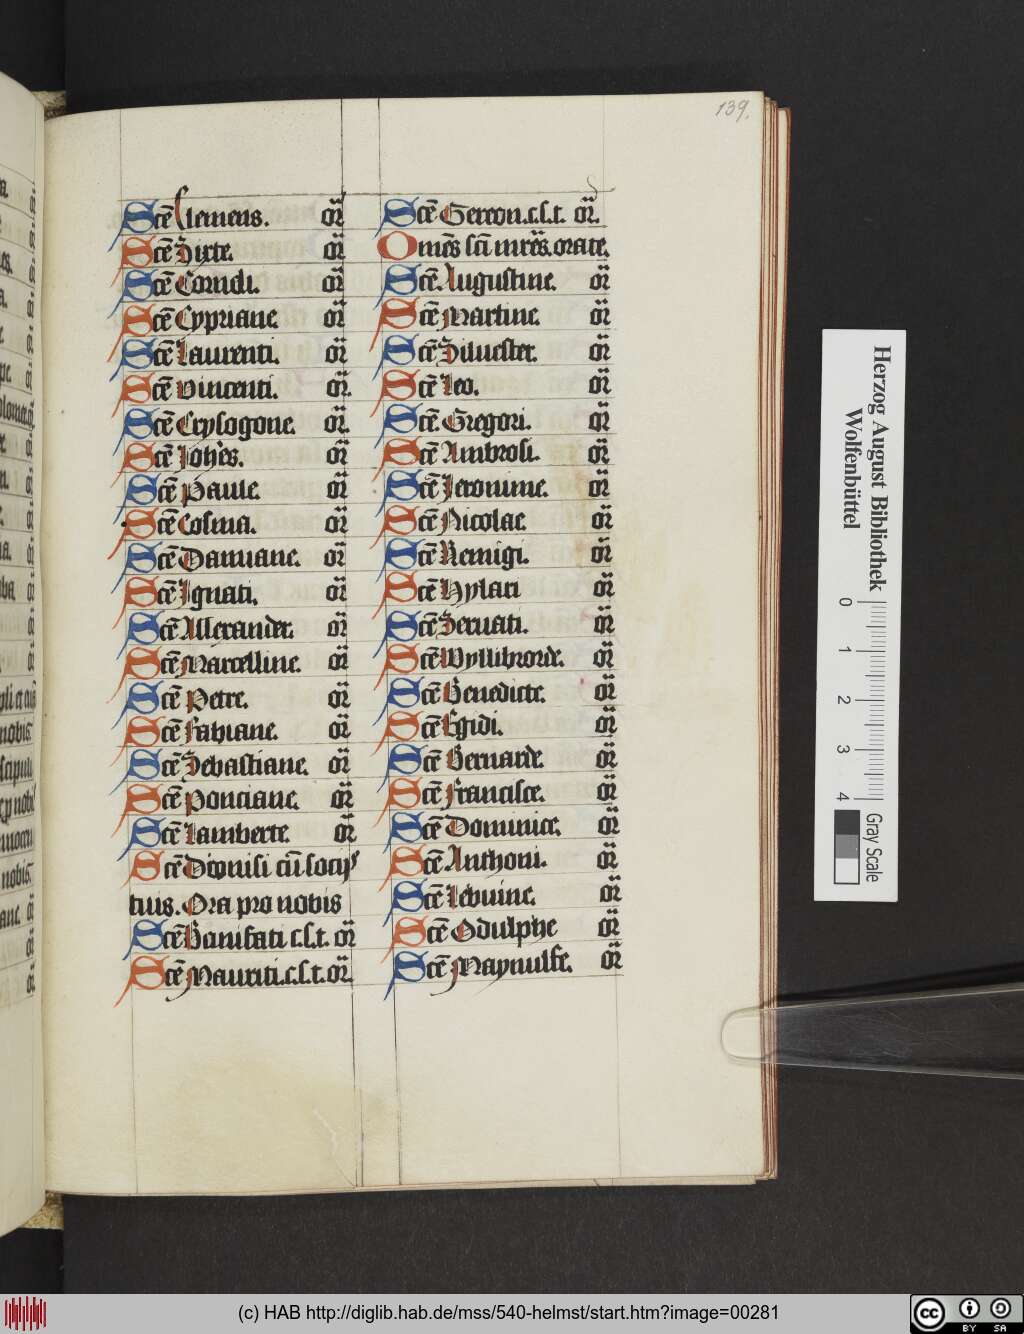 139.
Scē Clemens. or̄
Scē Sixte. or̄
Scē Corneli. or̄
Scē Cypriane. or̄
Scē Laurenti. or̄
Scē Vincenti. or̄.
Scē Crysogone. or̄.
Scē Ioh̄es. or̄
Scē Paule. or̄
Scē Cosma. or̄
Scē Damiane. or̄
Scē Ignati. or̄
Scē Allexander. or̄
Scē Marcelline. or̄
Scē Petre. or̄
Scē Fabiane. or̄
Scē Sebastiane. or̄
Scē Ponciane. or̄
Scē Lamberte. or̄
Scē Dionisi cū socijs
tuis. Ora pro nobis
Scē Bonifati c.s.t. or̄
Scē Mauriti.c.s.t. or̄.
Scē Gereon.c.s.t. or̄.
Om̄es sc̄i mr̄es.orate.
Scē Augustine. or̄
Scē Martine. or̄
Scē Siluester. or̄
Scē Leo. or̄
Scē Gregori. or̄
Scē Ambrosi. or̄
Scē Ieronime. or̄
Scē Nicolae. or̄
Scē Remigi. or̄
Scē Hylari or̄
Scē Seruati. or̄
Scē Wyllibrorde. or̄
Scē Benedicte. or̄
Scē Egidi. or̄
Scē Bernarde. or̄
Scē Francisce. or̄
Scē Dominice. or̄
Scē Anthoni. or̄
Scē Lebuine. or̄
Scē Odulphe or̄
Scē Maynulfe. or̄
Herzog August Bibliothek
Wolfenbüttel
0 1 2 3 4
Gray Scale
(c) HAB http://diglib.hab.de/mss/540-helmst/start.htm?image=00281
cc BY SA